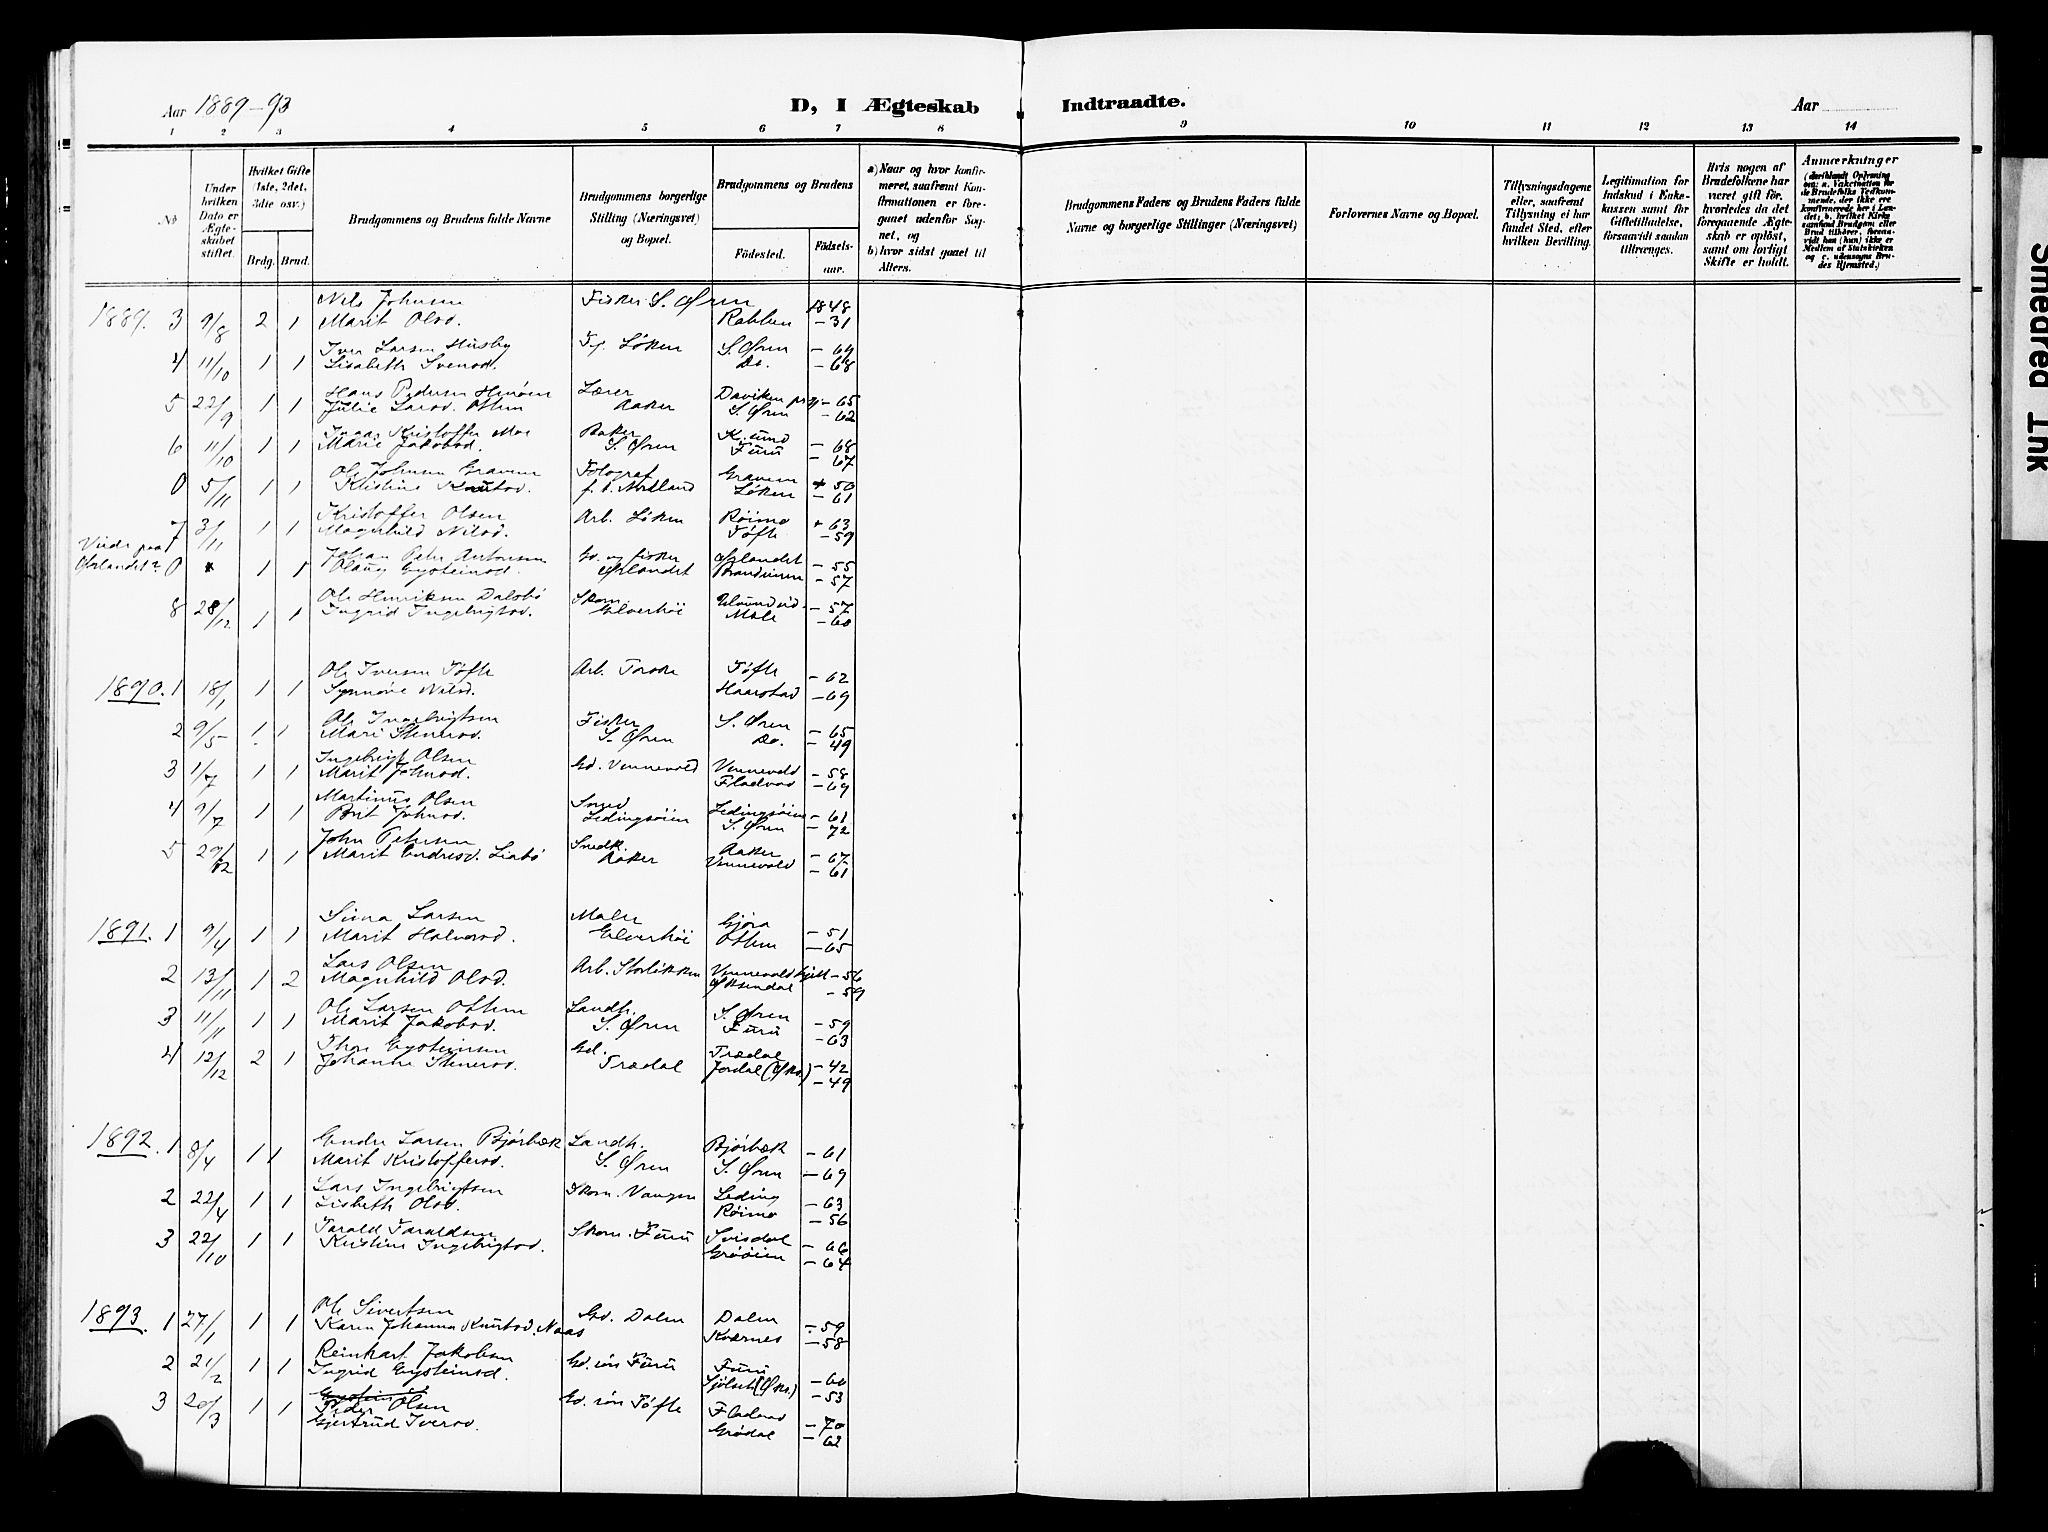 Aar 1889-93
D, I Ægteskab Indtraadte.
Aar
1 2 3 4 5 6 7 8 9 10 11 12 13 14
No
Under hvilken Dato er Ægteskabet stiftet.
Hvilket Gifte (1ste, 2det, 3dte osv.)
Brdg. Brud.
Brudgommens og Brudens fulde Navne
Brudgommens borgerlige Stilling (Næringsvei) og Bopæl.
Brudgommens og Brudens
Födested. Födsels-aar.
a) Naar og hvor konfirmeret, saafremt Konfirmationen er foregaaet udenför Sognet, og
b) hvor sidst gaaet til Alters.
Brudgommens Faders og Brudens Faders fulde Navne og borgerlige Stillinger (Næringsvei)
Forlovernes Navne og Bopæl.
Tillysningsdagene eller, saafremt Tillysning ei har fundet Sted, efter hvilken Bevilling.
Legitimation for Indskud i Enkekassen samt for Giftetilladelse, forsaavidt saadan tiltrænges.
Hvis nogen af Brudefolkene har været gift för, hvorledes da det foregaaende Ægteskab er oplöst, samt om lovligt Skifte er holdt.
Anmærkninger
1889. 3 9/8 2 1 Nils Johnsen Fisker S. Øren 1848
Marit Olsd. -31
4 11/10 1 1 Iver Larsen Husby Løken S. Øren -64
Lisabeth Svensd. Do. -68
5 22/9 1 1 Hans Pedersen Lærer Daviken -65
Julie Larsd. Ottem Aaker S. Øren -62
6 11/10 1 1 Kristoffer Moe Baker K.sund -68
Marie Jakobsd. S. Øren Furu -67
0 5/11 1 1 Ole Johnsen Gravem Fotograf Gravem 50
Kristine Knutsd. Løken -61
7 3/11 1 1 Kristoffer Olsen Arb. Løken Røimo 63
Magnhild Nilsd. Tøfte -59
Viede paa Ørlandet? 0 1 1 Johan Peter Antonsen Gd. og fisker Ørlandet -55
Olaug Eysteinsd. Ørlandet -57
8 28/12 1 1 Ole Henriksen Dalsbø Skom. -57
Ingrid Ingebrigtsd. Elverhøi Mæle -60
1890. 1 18/1 1 1 Ole Iversen Tøfte Arb. Tøfte -62
Synnøve Nilsd. Haarstad -69
2 9/5 1 1 Ole Ingebrigtsen Fisker S. Øren -65
Mari Stenersd. S. Øren Do. -49
3 1/7 1 1 Ingebrigt Olsen Gd. Vennevold Vennevold -58
Marit Johnsd. Fladvad -69
4 9/7 1 1 Martinus Olsen Smed Ledingsøien -61
Brit Johnsd. Ledingsøien S. Øren -72
5 29/12 1 1 John Petersen Snedk. Aaker -67
Marit Endresd. Liabø Aaker Vennevold -61
1891. 1 9/4 1 1 Larsen Maler Gjøra -51
Marit Halvorsd. Elverhøi Ottem -65
2 13/11 1 2 Lars Olsen Arb. Storlikken -56
Magnhild Olsd. Øksendal -59
3 11/11 1 1 Ole Larsen Ottem Landh. S. Øren -59
Marit Jakobsd. S. Øren Furu -63
4 12/12 2 1 Thor Eysteinsen Gd. Trædal -42
Johanne Stenersd. Trædal Jordal (Øks.) -49
1892. 1 8/4 1 1 Endre Larsen Bjørbæk Landh. Bjørbæk -61
Marit Kristoffersd. S. Øren S. Øren -69
2 22/4 1 1 Lars Ingebrigtsen Skom. Vangen Leding -63
Lisbeth Olsd. Røimo -56
3 22/10 1 1 Tarald Taraldsen Skom. Furu Svisdal -66
Kristine Ingebrigtsd. Grøøien -64
1893. 1 27/1 1 1 Ole Sivertsen Gd. Dalen Dalen -59
Karen Johanna Knutsd. Naas Kværnes -58
2 21/2 1 1 Reinhart Jakobsen Gd. søn Furu Furu -60
Ingrid Eysteinsd. Sjølset (Øks.) -53
3 20/3 1 1 Peder Olsen Gd. søn Tøfte Fladvad -70
Gjertrud Iversd. Grødal -62
Smeared Ink